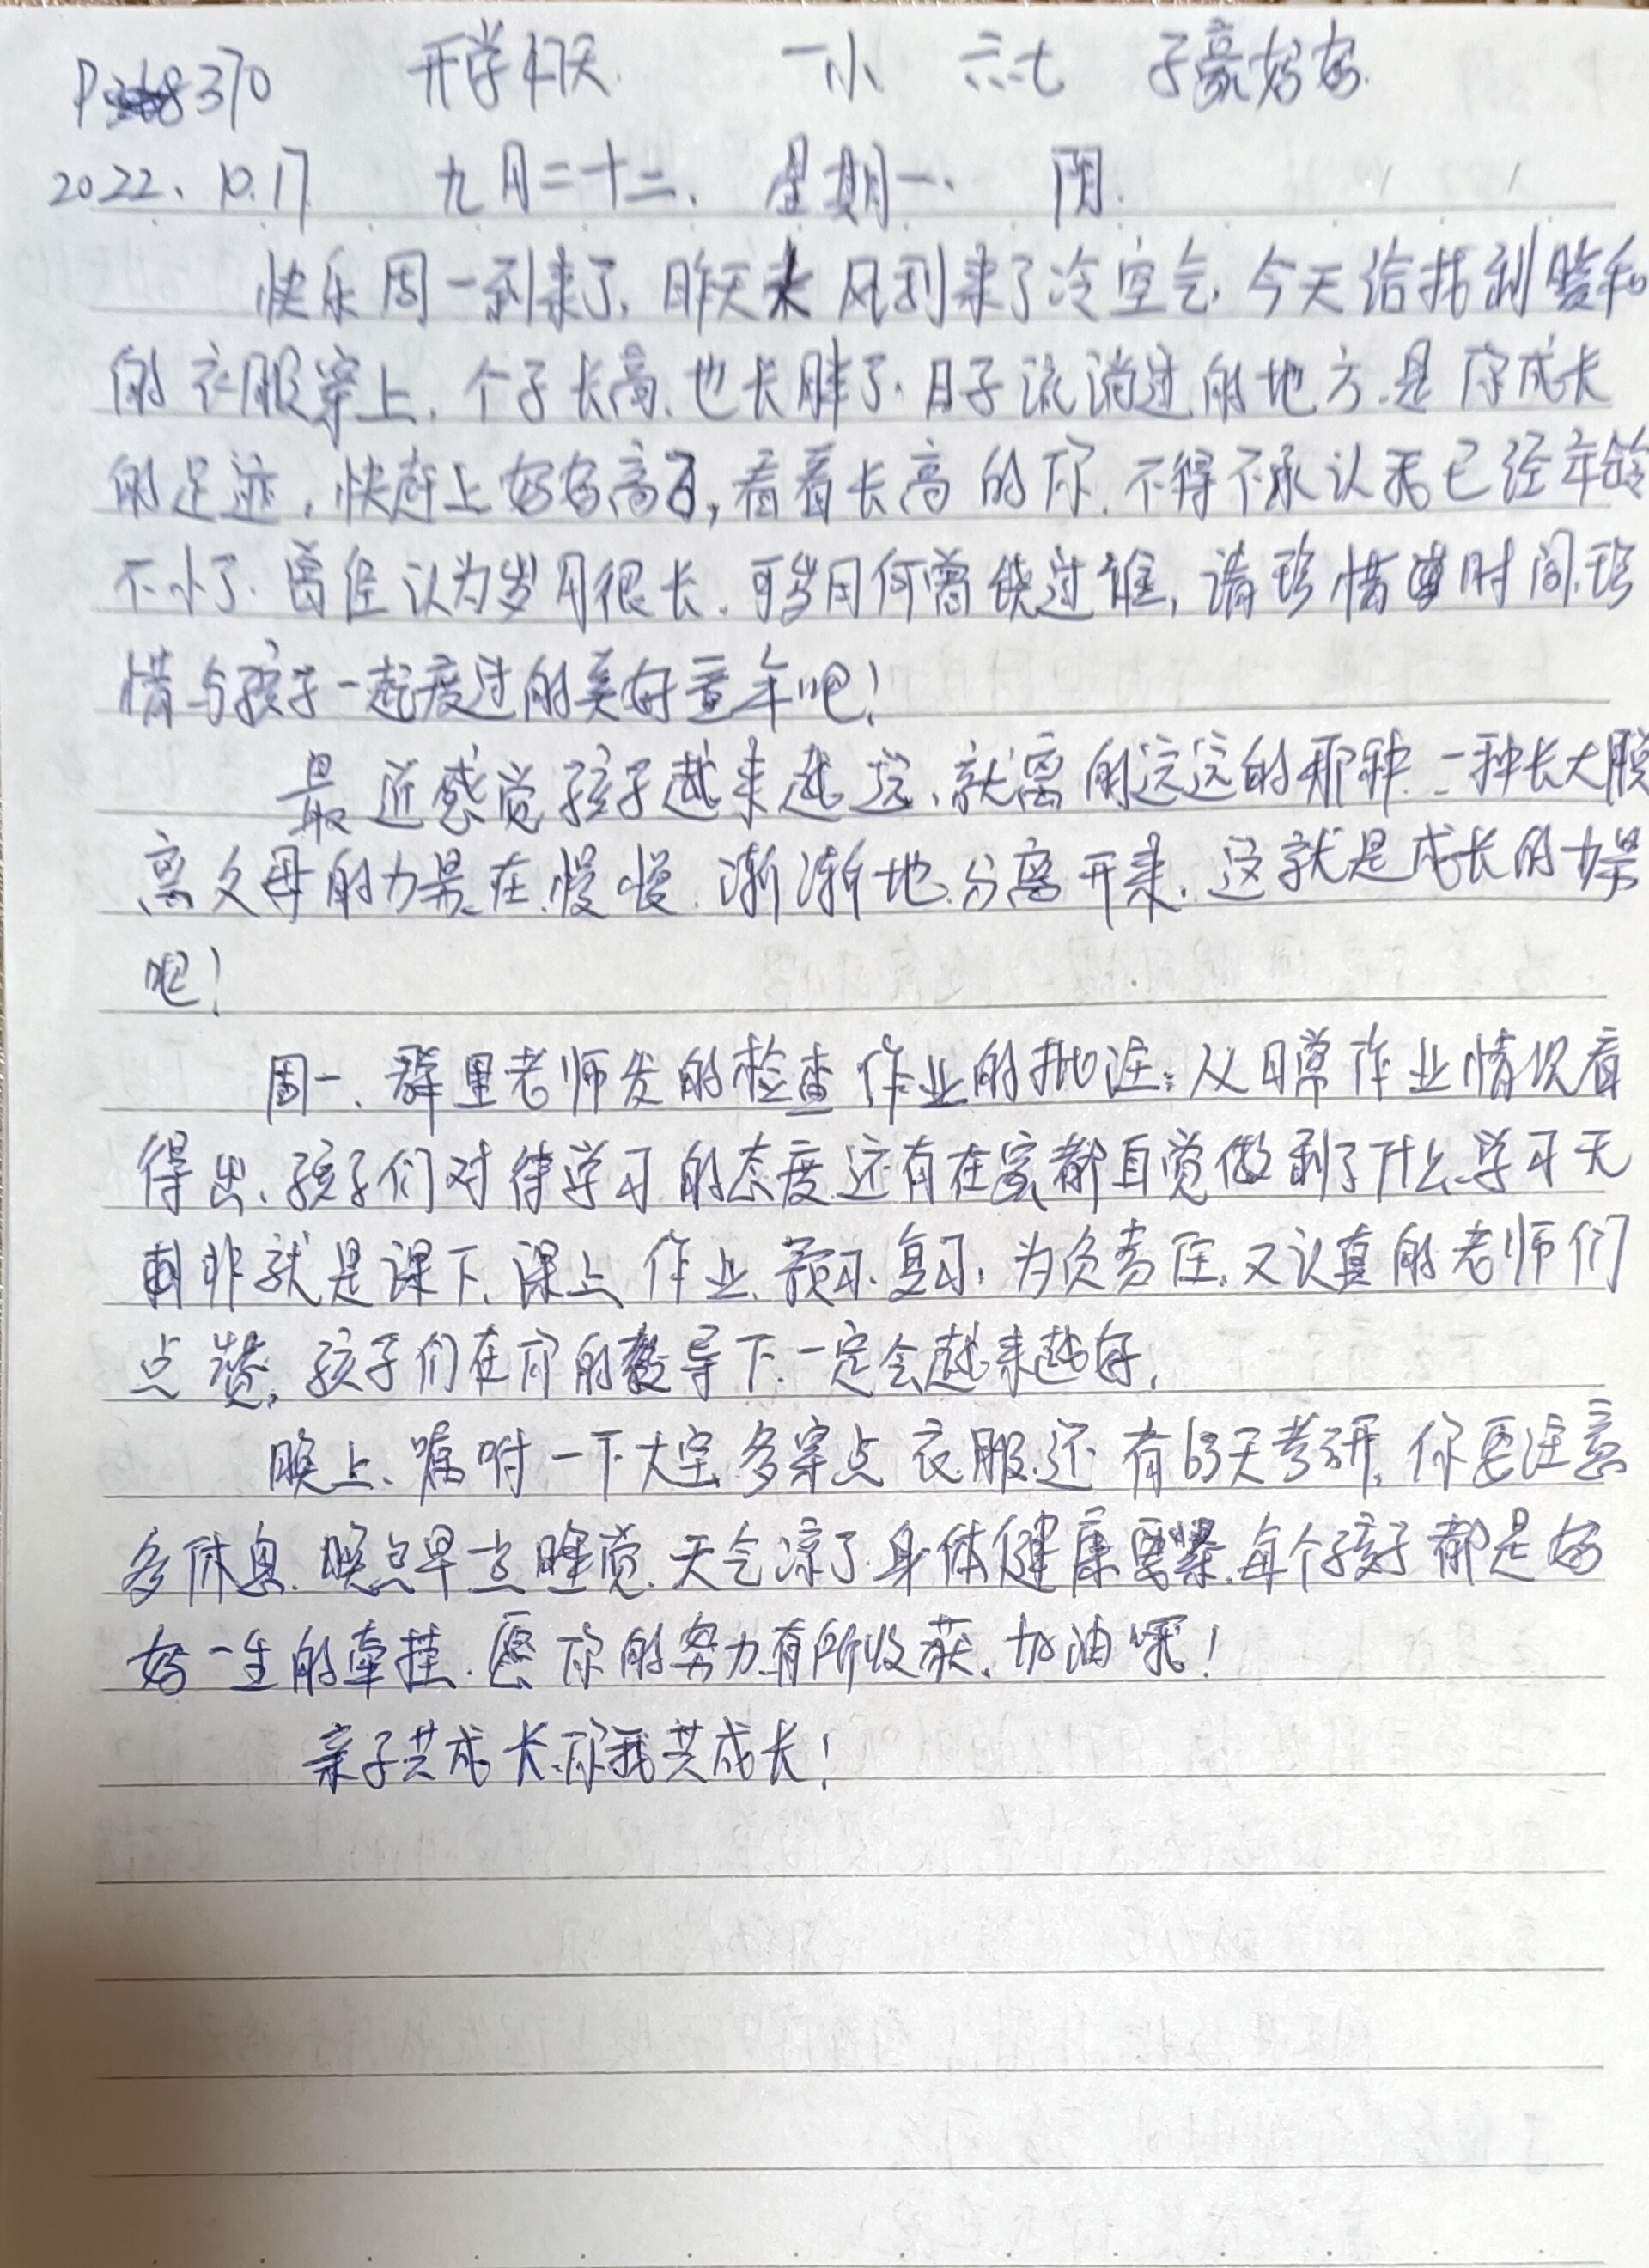 P 370 开学47天. 一小 六七 子豪妈妈.
2022.10.17 九月二十二. 星期一. 阴.
快乐周一到来了,昨天 风到来了冷空气,今天给找到暖和
的衣服穿上,个子长高、也长胖了.日子流淌过的地方.是你成长
的足迹,快赶上妈妈高了,看着长高的你.不得不承认我已经年龄
不小了.曾经认为岁月很长.可岁月何曾饶过谁,请珍惜 时间.珍
惜与孩子一起度过的美好童年吧!
最近感觉孩子越来越远,就离的远远的那种.一种长大脱
离父母的力量在慢慢.渐渐地分离开来,这就是成长的力量
吧!
周一、群里老师发的检查作业的批注:从日常作业情况看
得出、孩子们对待学习的态度.还有在家都自觉做到了什么.学习无
非就是课下、课上、作业、预习、复习,为负责任,又认真的老师们
点赞,孩子们在你的教导下.一定会越来越好,
晚上、嘱咐一下大宝.多穿点衣服.还有63天考研,你要注意
多休息.晚点早点睡觉.天气凉了.身体健康要紧.每个孩子都是妈
妈一生的牵挂.愿你的努力有所收获、加油哦!
亲子共成长.你我共成长!